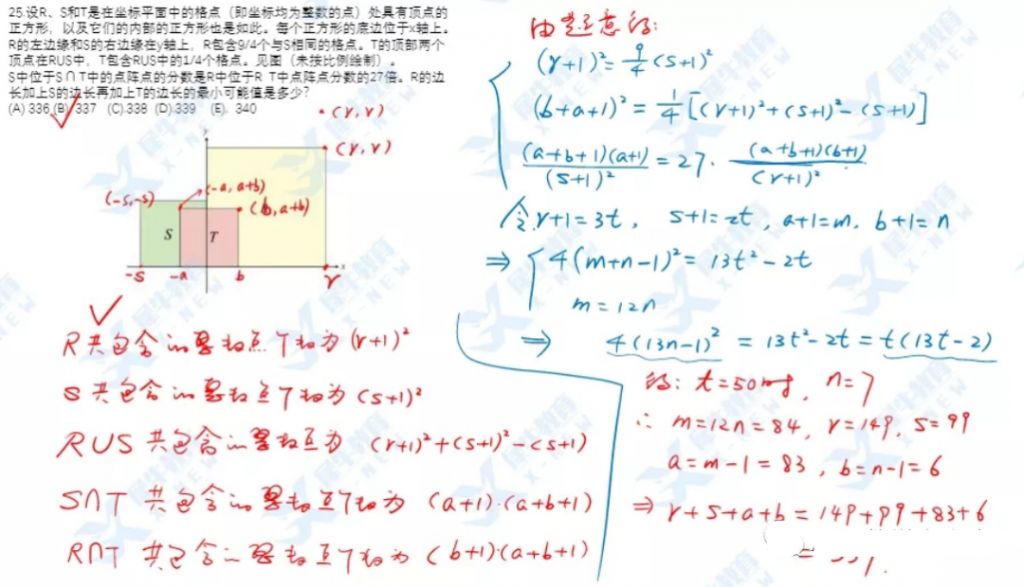 25.设R、S和T是在坐标平面中的格点（即坐标均为整数的点）处具有顶点的
正方形，以及它们的内部的正方形也是如此。每个正方形的底边位于x轴上。
R的左边缘和S的右边缘在y轴上，R包含9/4个与S相同的格点。T的顶部两个
顶点在RUS中，T包含RUS中的1/4个格点。见图（未按比例绘制）。
S中位于S∩T中的点阵点的分数是R中位于R T中点阵点分数的27倍。R的边
长加上S的边长再加上T的边长的最小可能值是多少?
(A) 336 (B) 337 (C).338 (D).339 (E). 340
(r,r)
y
(r,r)
(-a,a+b)
(-s,-s)
(b,a+b)
S T
-s -a b r x
R共包含 点 为 (r+1)²
S 共包含 点 为 (s+1)²
RUS 共包含 为 (r+1)²+(s+1)²-(s+1)
S∩T 共包含 为 (a+1)·(a+b+1)
R∩T 共包含 为 (b+1)·(a+b+1)
由题意得:
(r+1)²=9/4(s+1)²
(b+a+1)²=1/4[(r+1)²+(s+1)²-(s+1)]
(a+b+1)(a+1)/(s+1)²=27·(a+b+1)(b+1)/(r+1)²
令r+1=3t, s+1=2t, a+1=m, b+1=n
⇒ 4(m+n-1)²=13t²-2t
m=12n
⇒ 4(13n-1)²=13t²-2t=t(13t-2)
得: t=50 n=7
∴ m=12n=84, r=149, s=99
a=m-1=83, b=n-1=6
⇒ r+s+a+b=149+99+83+6